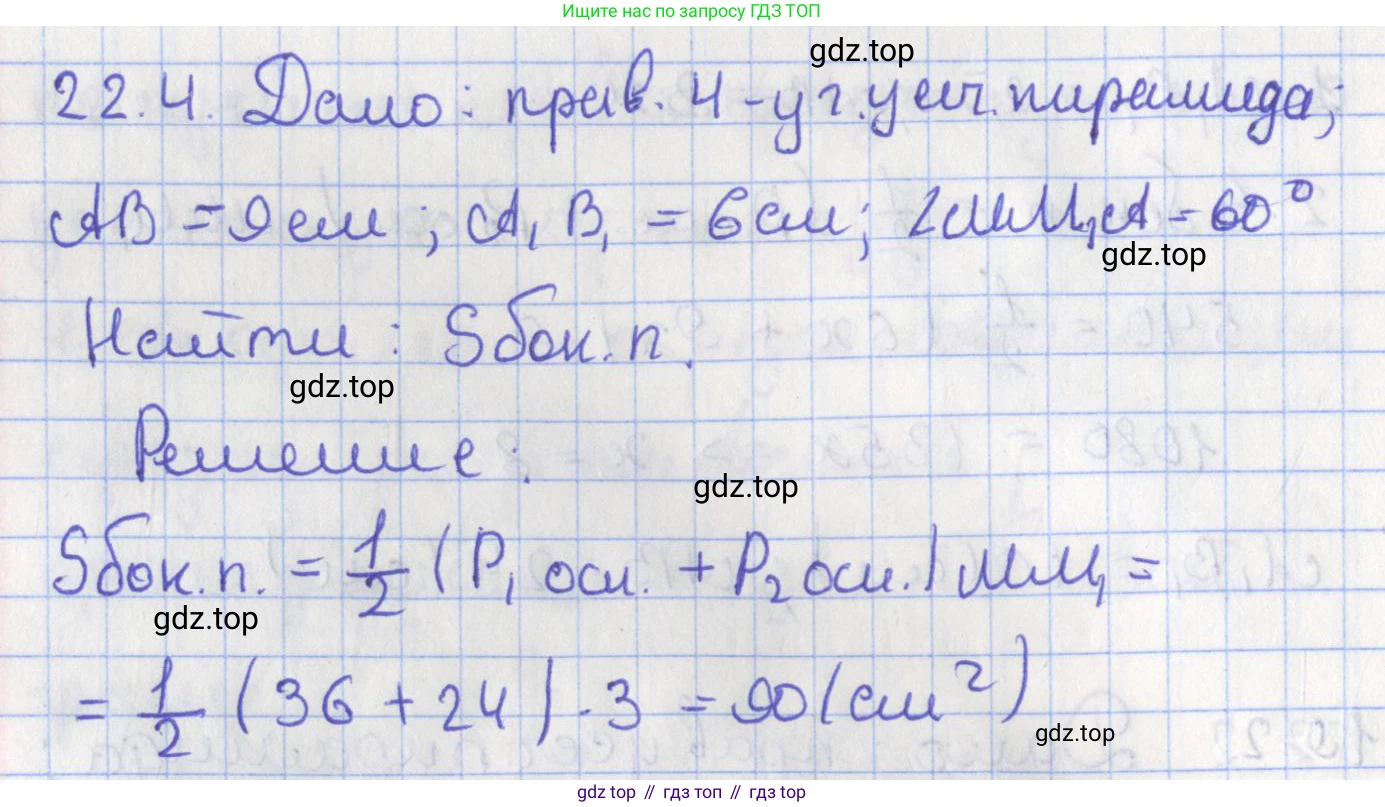 Ищите нас по запросу ГДЗ ТОП
gdz.top
22.4. Дано: прав. 4-уг. усеч. пирамида;
AB = 9 см; A₁B₁ = 6 см; ∠MM₁A = 60°
gdz.top
Найти: Sбок.п.
gdz.top
Решение:
gdz.top
Sбок.п. = 1/2 (P₁ осн. + P₂ осн.) MM₁ =
gdz.top
= 1/2 (36 + 24) · 3 = 90 (см²)
gdz.top
gdz top // гдз топ // гдз top